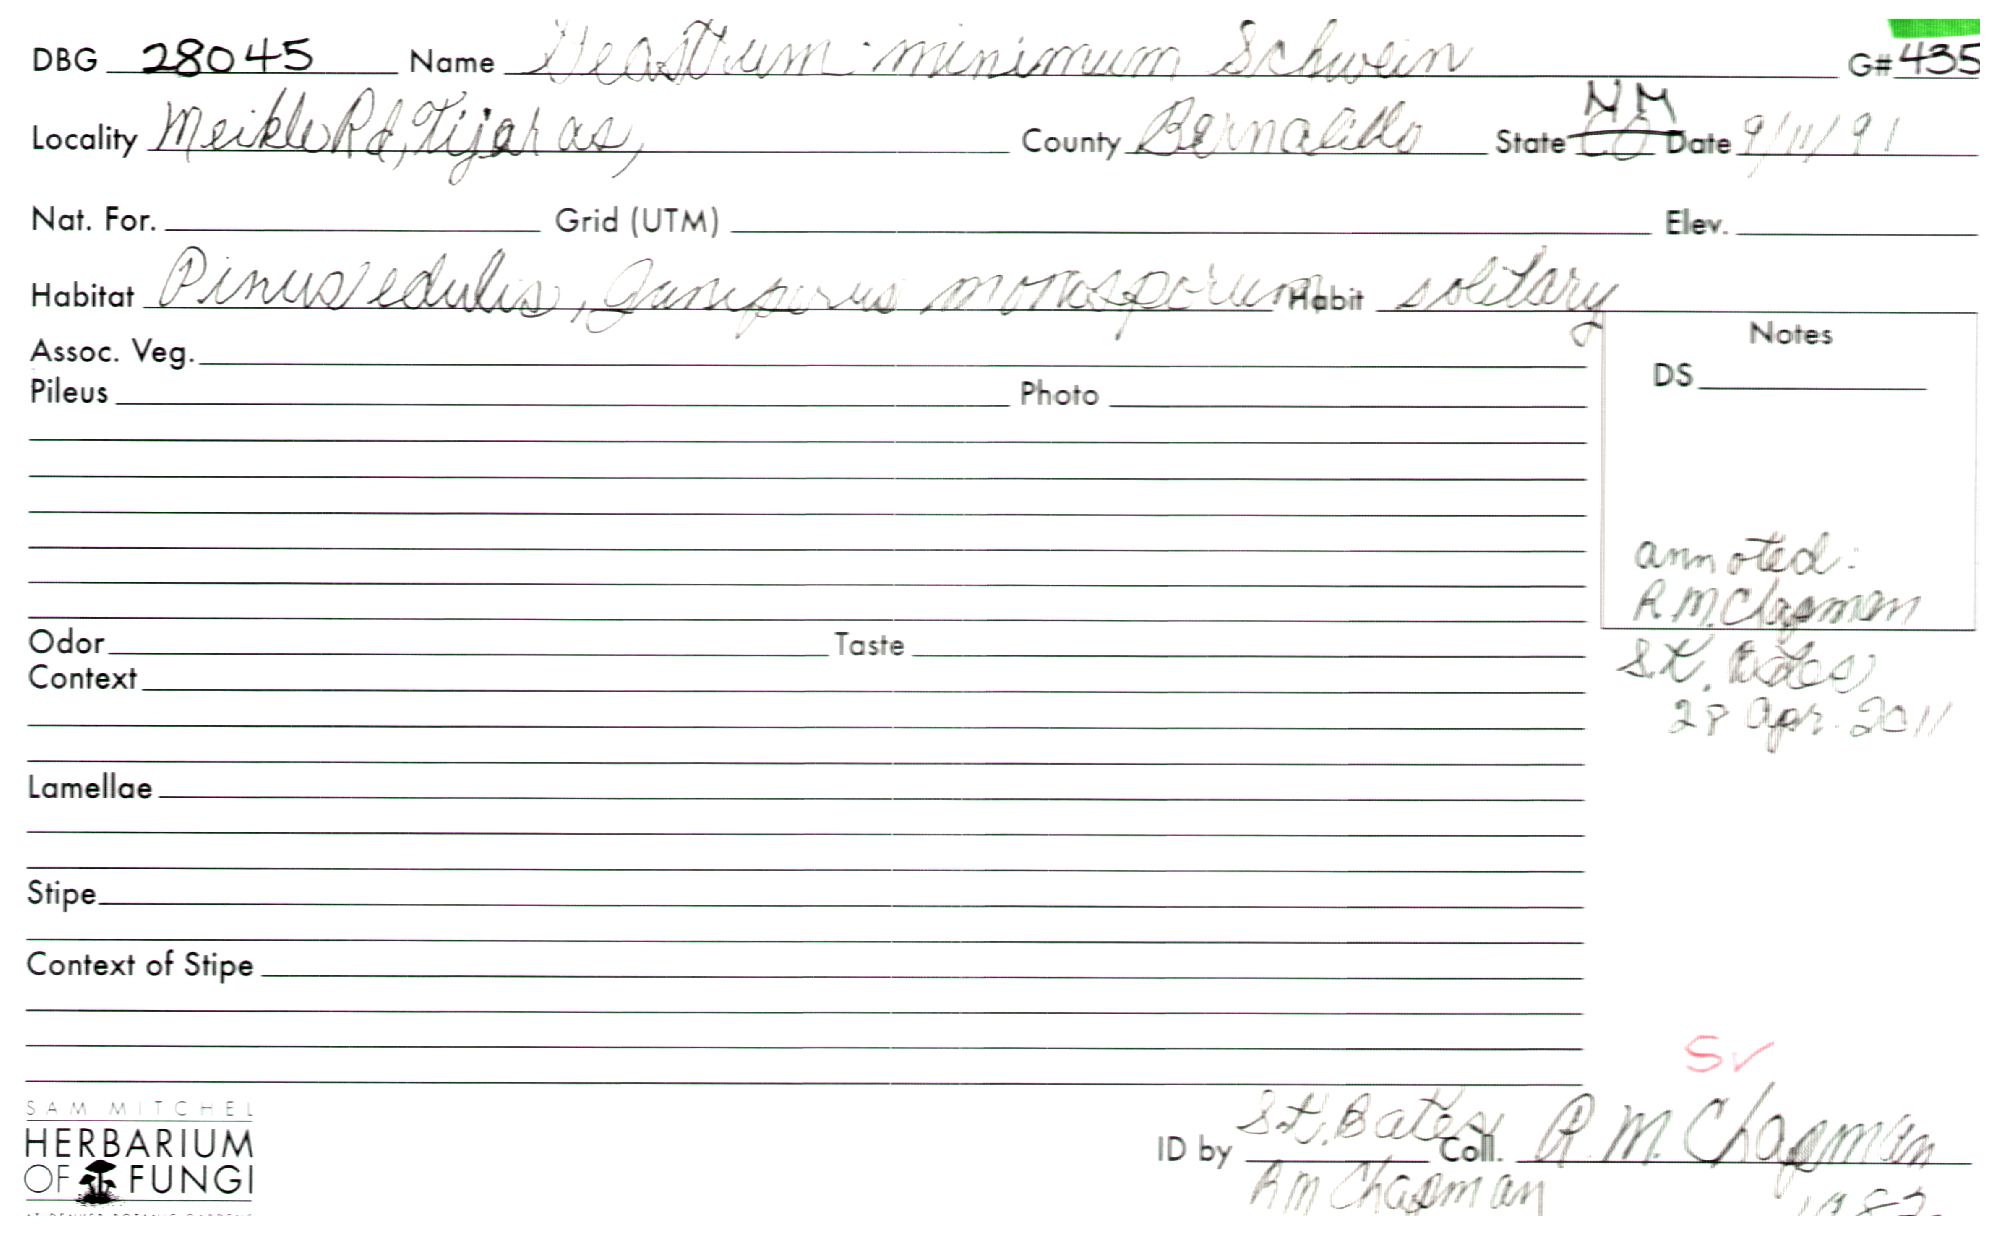 DBG 28045 Name Geastrum minimum Schwein G# 435
Locality Meikle Rd, Tijeras, County Bernalillo State CO NM Date 9/11/91
Nat. For. Grid (UTM) Elev.
Habitat Pinus edulis, Juniperus monosporum Habit solitary
Assoc. Veg. Notes
DS
Pileus Photo
annoted:
R.M. Chapman
Odor Taste
S.T. Bates
Context
28 Apr. 2011
Lamellae
Stipe
Context of Stipe
S✓
SAM MITCHEL
HERBARIUM
OF FUNGI
AT DENVER BOTANIC GARDENS
S.T. Bates
ID by Coll. R. M. Chapman
RM Chapman